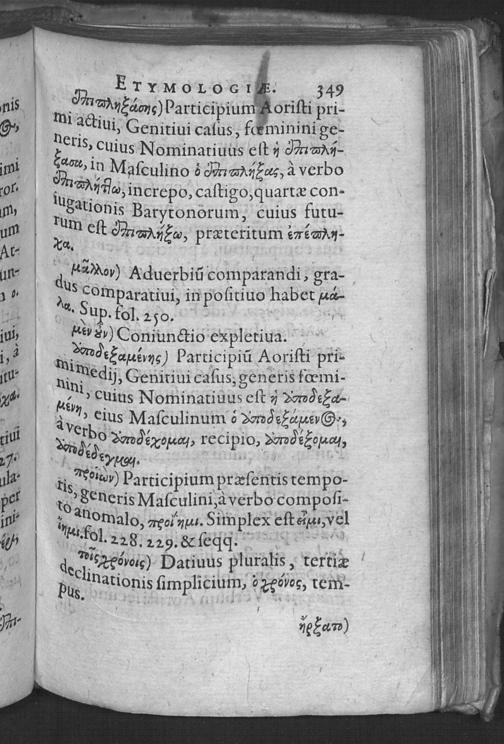 ETYMOLOGIÆ. 349
ἐπιπληξάσης) Participium Aoristi pri-
mi actiui, Genitiui casus, fœminini ge-
neris, cuius Nominatiuus est ἡ ἐπιπλή-
ξασα, in Masculino ὁ ἐπιπλήξας, à verbo
ἐπιπλήττω, increpo, castigo, quartæ con-
iugationis Barytonorum, cuius futu-
rum est ἐπιπλήξω, præteritum ἐπέπλη-
χα.
μᾶλλον) Aduerbiū comparandi, gra-
dus comparatiui, in positiuo habet μά-
λα. Sup. fol. 250.
μὲν οὖν) Coniunctio expletiua.
ὑποδεξαμένης) Participiū Aoristi pri-
mi medij, Genitiui casus, generis fœmi-
nini, cuius Nominatiuus est ἡ ὑποδεξα-
μένη, eius Masculinum ὁ ὑποδεξάμενος,
à verbo ὑποδέχομαι, recipio, ὑποδέξομαι,
ὑποδέδεγμαι.
προϊών) Participium præsentis tempo-
ris, generis Masculini, à verbo composi-
to anomalo, πρόϊημι. Simplex est εἶμι, vel
ἵημι. fol. 228. 229. & seqq.
τοῖς χρόνοις) Datiuus pluralis, tertiæ
declinationis simplicium, ὁ χρόνος, tem-
pus.
ἤρξατο)